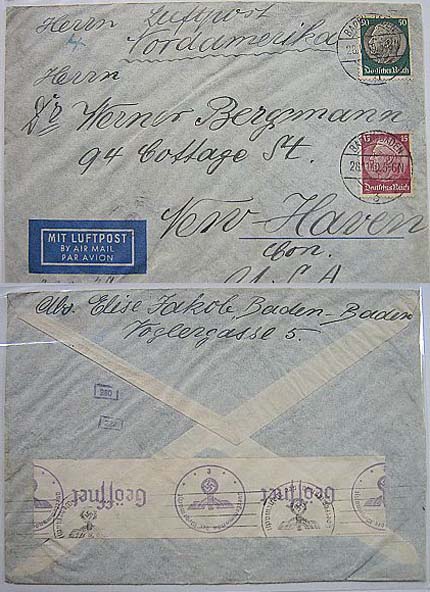 Herrn Luftpost
Nordamerika
Herrn
Dr Werner Bergmann
94 Cottage St.
New Haven
Con.
U.S.A.
50
Deutsches Reich
15
Deutsches Reich
BADEN-BADEN
BADEN-BADEN
MIT LUFTPOST
BY AIR MAIL
PAR AVION
Abs. Elise Jakob, Baden-Baden
Voglergasse 5.
Geöffnet
Geöffnet